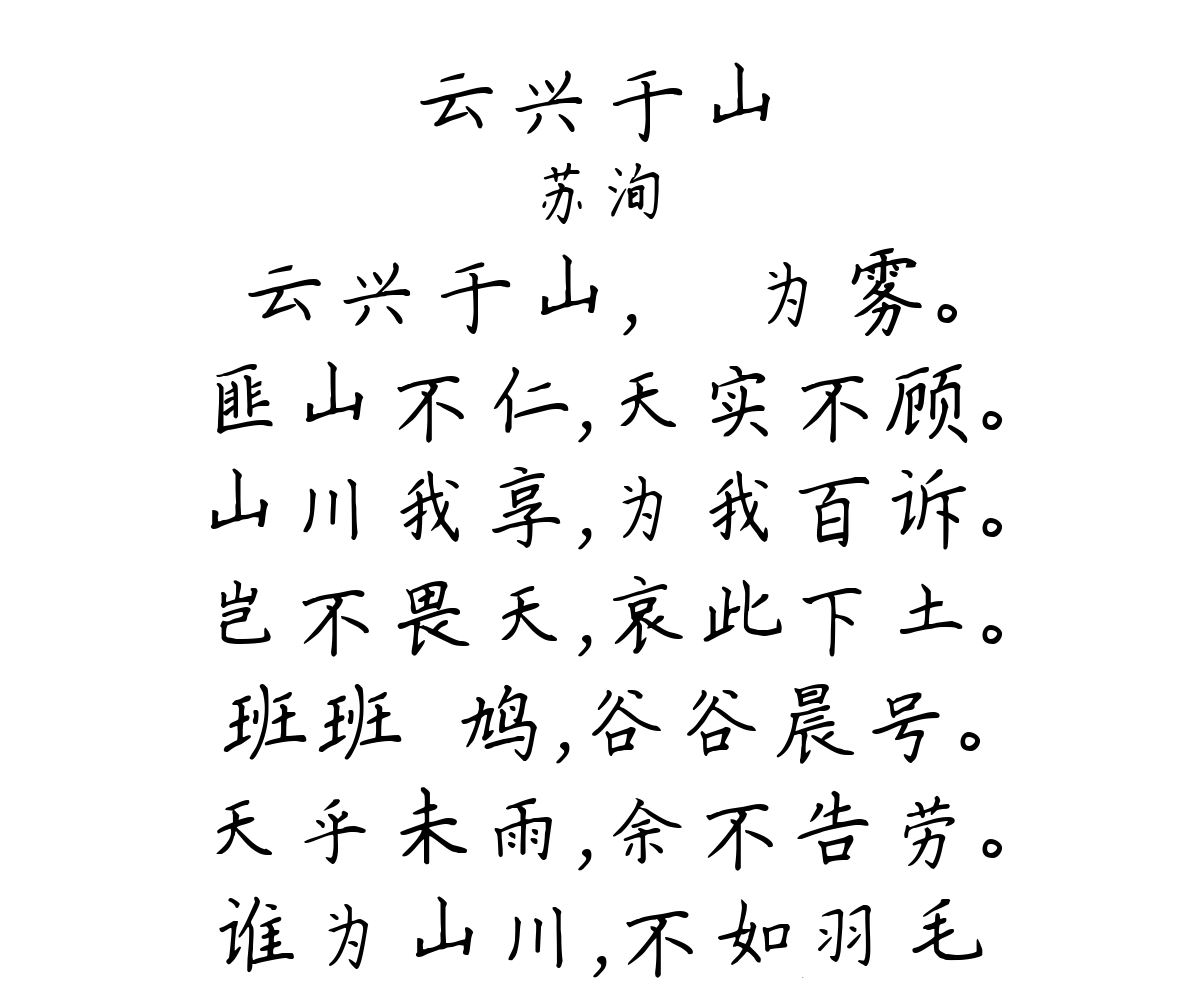 云兴于山
苏洵
云兴于山， 为雾。
匪山不仁,天实不顾。
山川我享,为我百诉。
岂不畏天,哀此下土。
班班 鸠,谷谷晨号。
天乎未雨,余不告劳。
谁为山川,不如羽毛